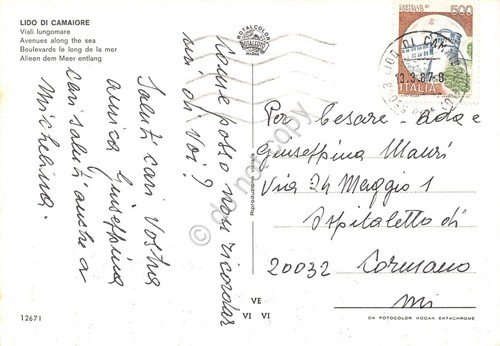 LIDO DI CAMAIORE
Viali lungomare
Avenues along the sea
Boulevards le long de la mer
Alleen dem Meer entlang
Come posso non ricordar
mi di voi?
Saluti cari Vostra
amica Giuseppina
cari saluti anche a
Michelina.
12671
ROTALCOLOR
Riproduzione vietata
VE
VI VI
500
ITALIA
LIDO DI CAMAIORE
13.3.87-8
Per Cesare - Ada e
Giuseppina Mauri
Via 24 Maggio 1
Ospitaletto di
20032 Cormano
Mi
DA FOTOCOLOR KODAK EKTACHROME
do not copy